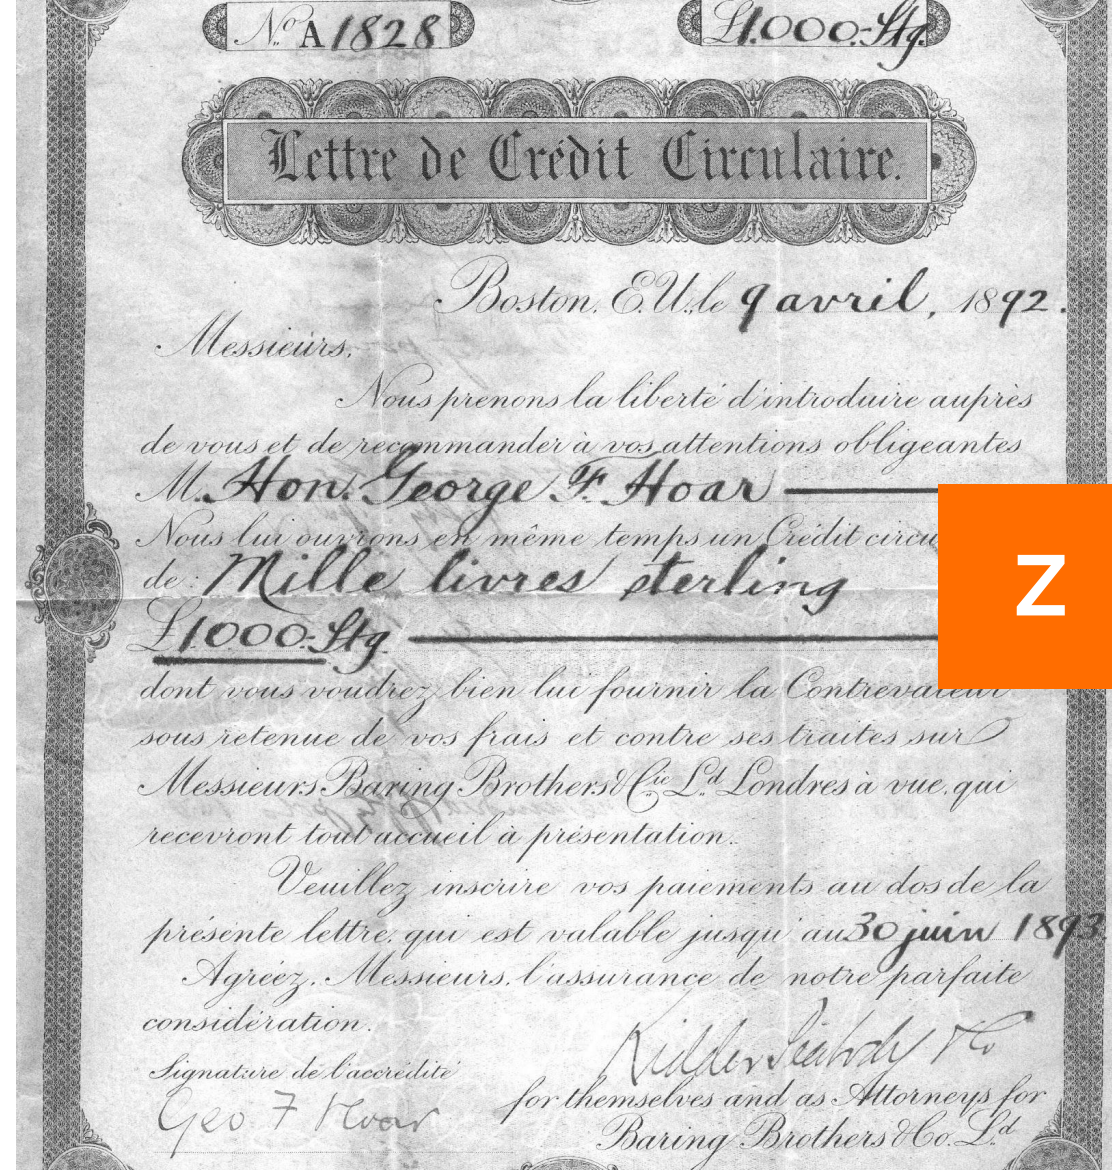 No. A 1828
£1.000.- Stg.
Lettre de Crédit Circulaire.
Boston, E.U. le 9 avril, 1892.
Messieurs,
Nous prenons la liberté d'introduire auprès
de vous et de recommander à vos attentions obligeantes
M. Hon. George F. Hoar
Nous lui ouvrons en même temps un Crédit circu
de: Mille livres sterling
£1000.- Stg
dont vous voudrez bien lui fournir la Contrevaleur
sous retenue de vos frais et contre ses traites sur
Messieurs Baring Brothers & Cie. Ld. Londres à vue, qui
recevront tout accueil à présentation.
Veuillez inscrire vos paiements au dos de la
présente lettre, qui est valable jusqu'au 30 juin 1893
Agréez, Messieurs, l'assurance de notre parfaite
considération.
Kidder Peabody & Co
Signature de l'accrédité
Geo F Hoar
for themselves and as Attorneys for
Baring Brothers & Co. Ld.
Z